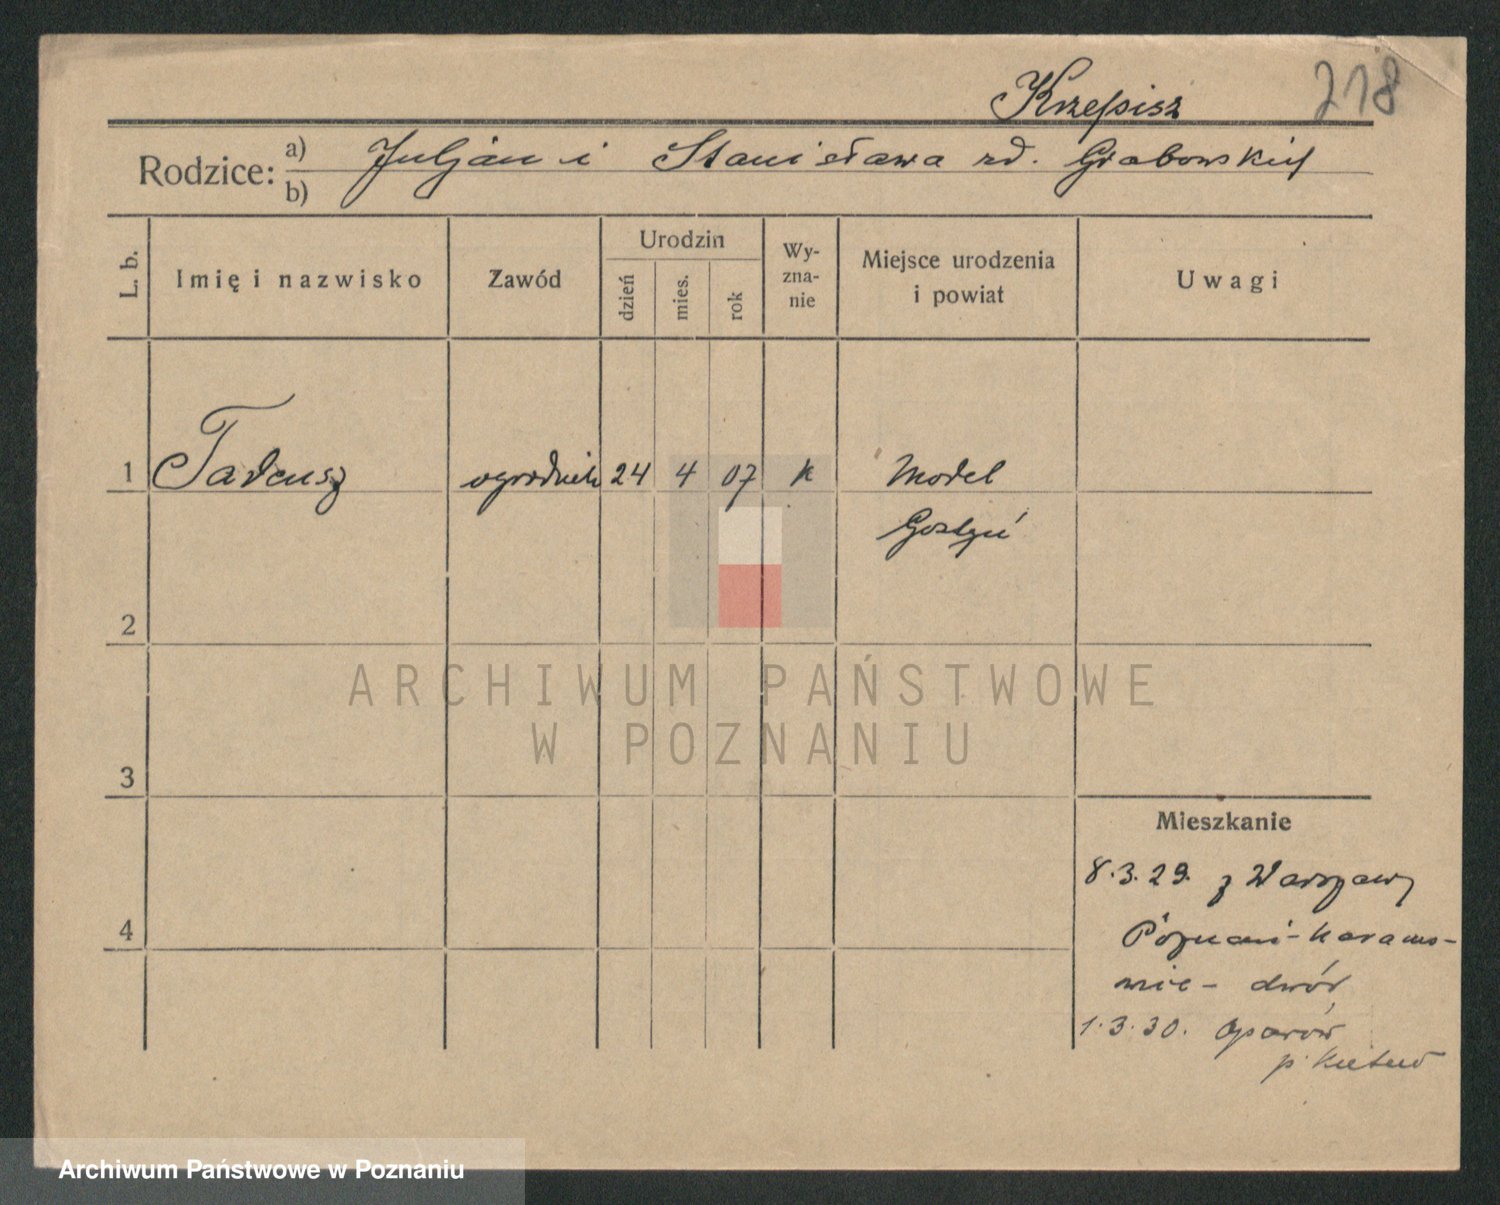 Krzepisz 218
Rodzice: a) Juljan i Stanisława zd. Grabowskich
b)
L. b. Imię i nazwisko Zawód Urodzin dzień mies. rok Wy-zna-nie Miejsce urodzenia i powiat Uwagi
1 Tadeusz ogrodnik 24 4 07 k Model
Gostyń
2
3
4
Mieszkanie
8.3.29. z Warszawy
Poznań - Naramo-
wice - dwór
1.3.30. Oporów
p. Kutno
ARCHIWUM PAŃSTWOWE
W POZNANIU
Archiwum Państwowe w Poznaniu